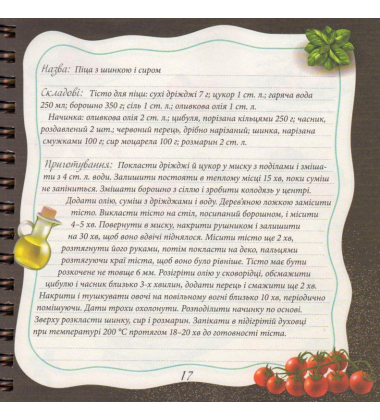 Назва: Піца з шинкою і сиром
Складові: Тісто для піци: сухі дріжджі 7 г; цукор 1 ст. л.; гаряча вода
250 мл; борошно 350 г; сіль 1 ст. л.; оливкова олія 1 ст. л.
Начинка: оливкова олія 2 ст. л.; цибуля, порізана кільцями 250 г; часник,
роздавлений 2 шт.; червоний перець, дрібно нарізаний; шинка, нарізана
смужками 100 г; сир моцарела 100 г; розмарин 2 ст. л.
Приготування: Покласти дріжджі й цукор у миску з поділами і зміша-
ти з 4 ст. л. води. Залишити постояти в теплому місці 15 хв, поки суміш
не запіниться. Змішати борошно з сіллю і зробити колодязь у центрі.
Додати олію, суміш з дріжджами і воду. Дерев'яною ложкою замісити
тісто. Викласти тісто на стіл, посипаний борошном, і місити
4–5 хв. Повернути в миску, накрити рушником і залишити
на 30 хв, щоб воно вдвічі піднялося. Місити тісто ще 2 хв,
розтягнути його руками, потім покласти на деко, пальцями
розтягуючи краї тіста, щоб воно було рівніше. Тісто має бути
розкочене не товще 6 мм. Розігріти олію у сковорідці, обсмажити
цибулю і часник близько 3-х хвилин, додати перець і смажити ще 2 хв.
Накрити і тушкувати овочі на повільному вогні близько 10 хв, періодично
помішуючи. Дати трохи охолонути. Розподілити начинку по основі.
Зверху розкласти шинку, сир і розмарин. Запікати в підігрітій духовці
при температурі 200 °С протягом 18–20 хв до готовності тіста.
17